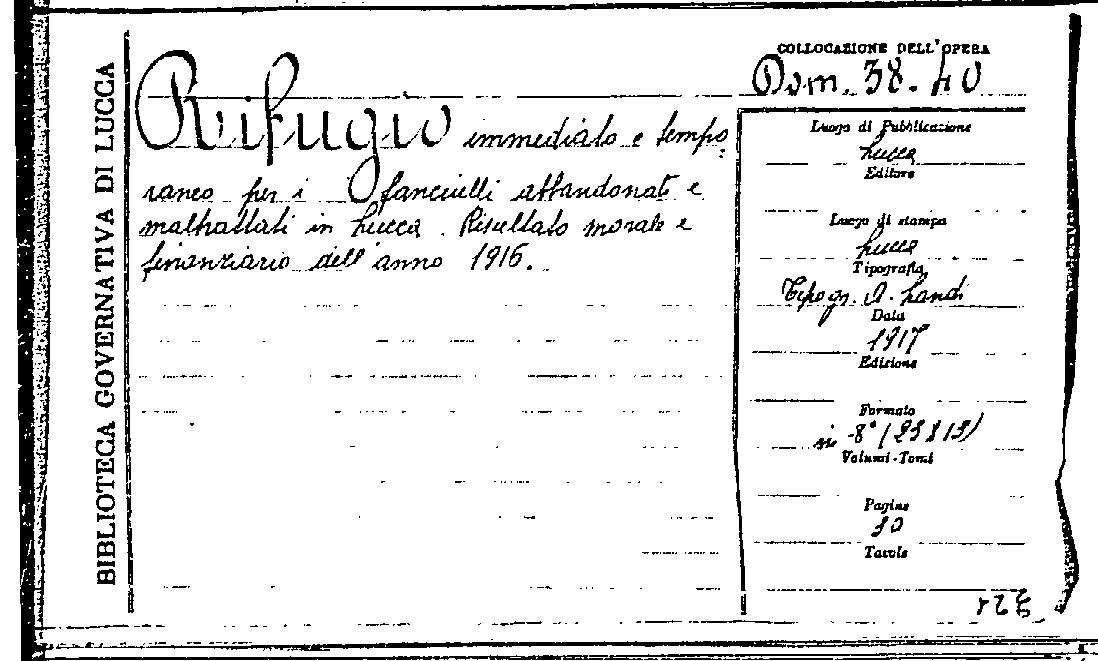 BIBLIOTECA GOVERNATIVA DI LUCCA
COLLOCAZIONE DELL'OPERA
Dom. 38. 40
Rifugio immediato e tempo-
raneo per i fanciulli abbandonati e
maltrattati in Lucca. Risultato morale e
finanziario dell'anno 1916.
Luogo di Pubblicazione
Lucca
Editore
Luogo di stampa
Lucca
Tipografia
Tipogr. A. Landi
Data
1917
Edizione
Formato
in -8°
Volumi-Tomi
Pagine
Tavole